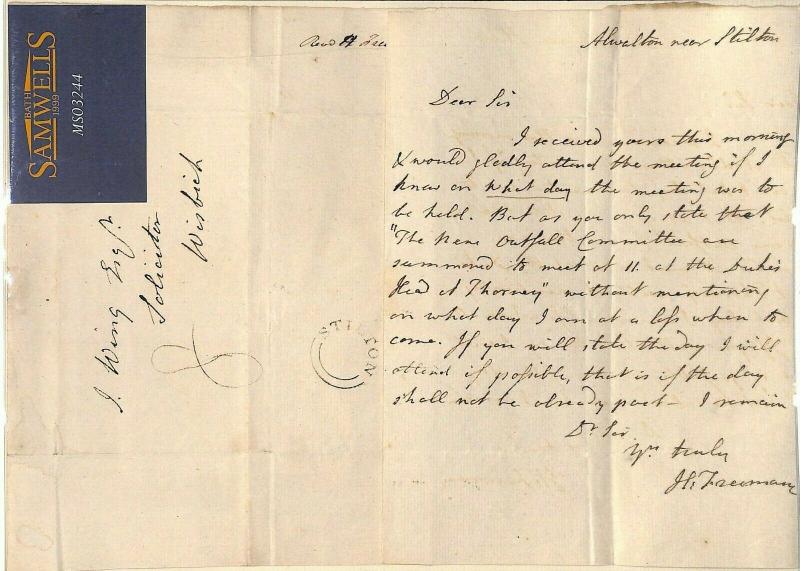 BATH
SAMWELLS
1999
MS03244
J. Wing Esqr.
Solicitor
Wisbich
STILTON
Alwalton near Stilton
Dear Sir
I received yours this morning
& would gladly attend the meeting if I
knew on what day the meeting was to
be held. But as you only state that
"The Nene Outfall Committee are
summoned to meet at 11. at the Duke's
Head at Thorney" without mentioning
on what day I am at a loss when to
come. If you will state the day I will
attend if possible, that is if the day
shall not be already past – I remain
Dr. Sir
Yrs truly
J. Freeman